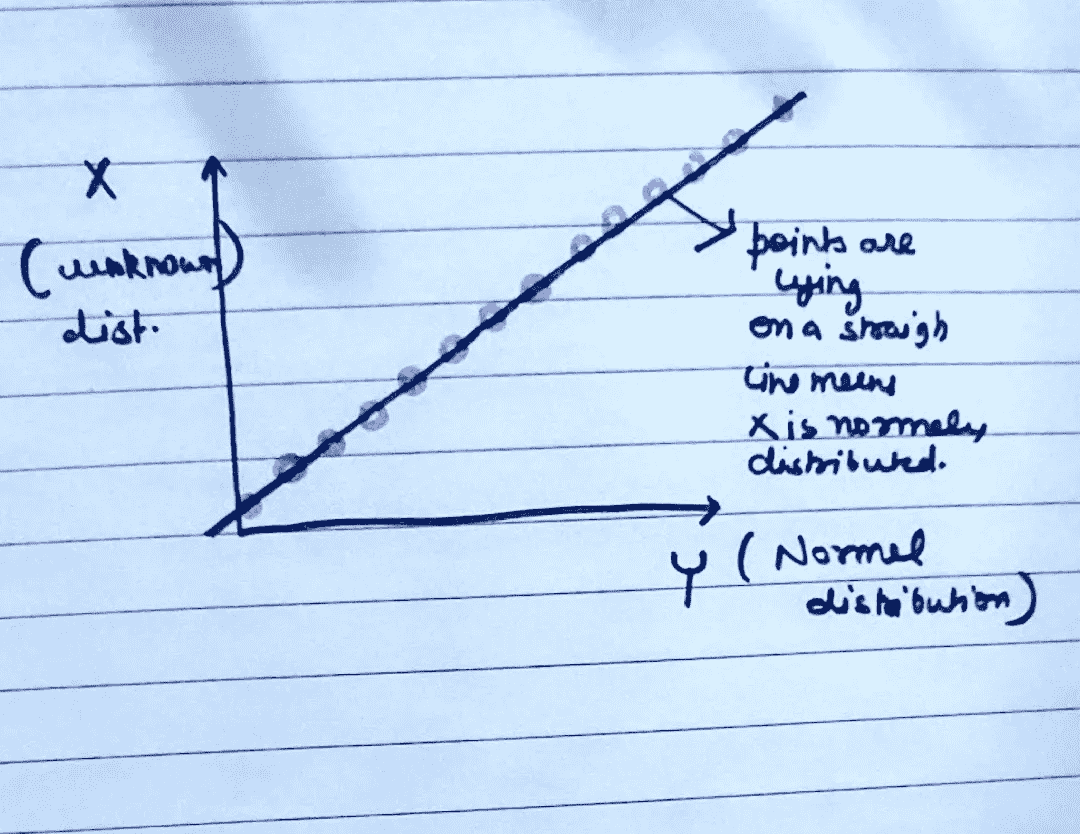 X
(unknown)
dist.
points are
lying
on a straigh
line means
X is normely
distributed.
Y (Normal
distribution)